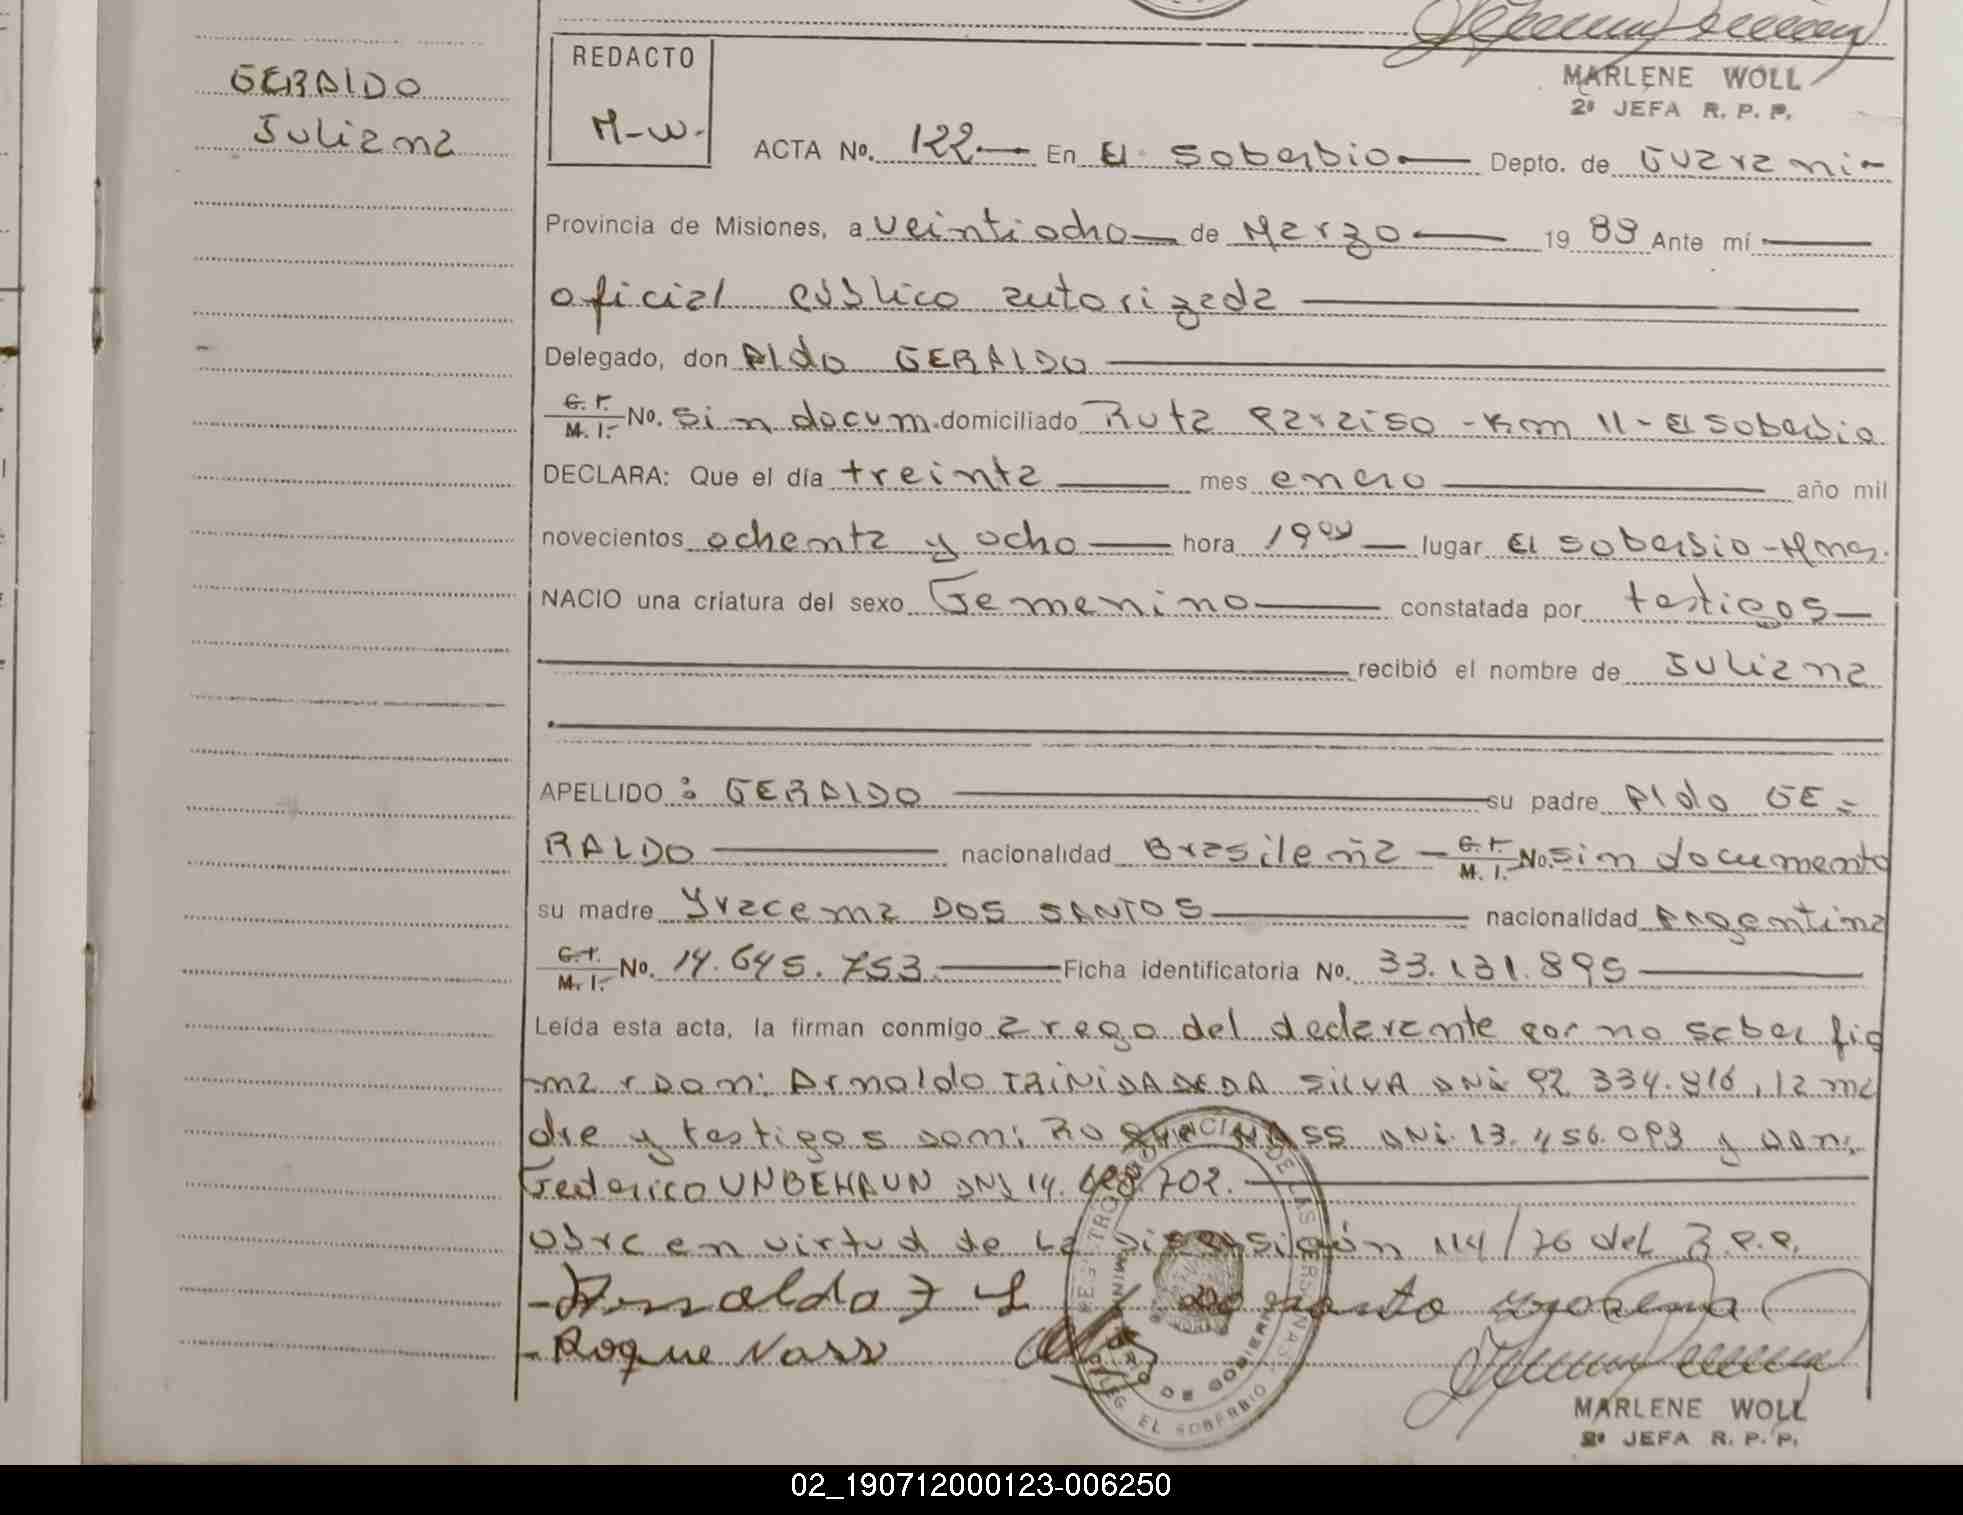 GERALDO
Juliana
REDACTO
M-W-
MARLENE WOLL
2ª JEFA R. P. P.
ACTA No. 122 En El Soberbio Depto. de Guarani
Provincia de Misiones, a veintiocho de Marzo 1989 Ante mí
oficial público autorizada
Delegado, don Aldo GERALDO
C. I. M. I. No. sin docum. domiciliado Ruta Paraiso - Km 11 - El Soberbio
DECLARA: Que el día treinta mes enero año mil
novecientos ochenta y ocho hora 19 00 lugar El Soberbio - Mnes.
NACIO una criatura del sexo Femenino constatada por testigos
recibió el nombre de Juliana
APELLIDO : GERALDO su padre Aldo GE-
RALDO nacionalidad Brasileña - C. I. M. I. No. sin documento
su madre Yracema DOS SANTOS nacionalidad Argentina
C. I. M. I. No. 14.645.753. Ficha identificatoria No. 33.131.895
Leída esta acta, la firman conmigo a ruego del declarante por no saber fir
mar Don: Arnaldo TRINIDADE DA SILVA DNI 92.334.916, la ma
dre y testigos Don: Roque NASS DNI. 13. 456.093 y Don:
Federico UNBEHAUN DNI 14.628.702.
Obra en virtud de la Disposición 114/76 del R.P.P.
Arnaldo T S do santo yracema
Roque Nass
REGISTRO PROVINCIAL DE LAS PERSONAS
MINISTERIO DE GOBIERNO
DELEG. EL SOBERBIO
MARLENE WOLL
2ª JEFA R. P. P.
02_190712000123-006250